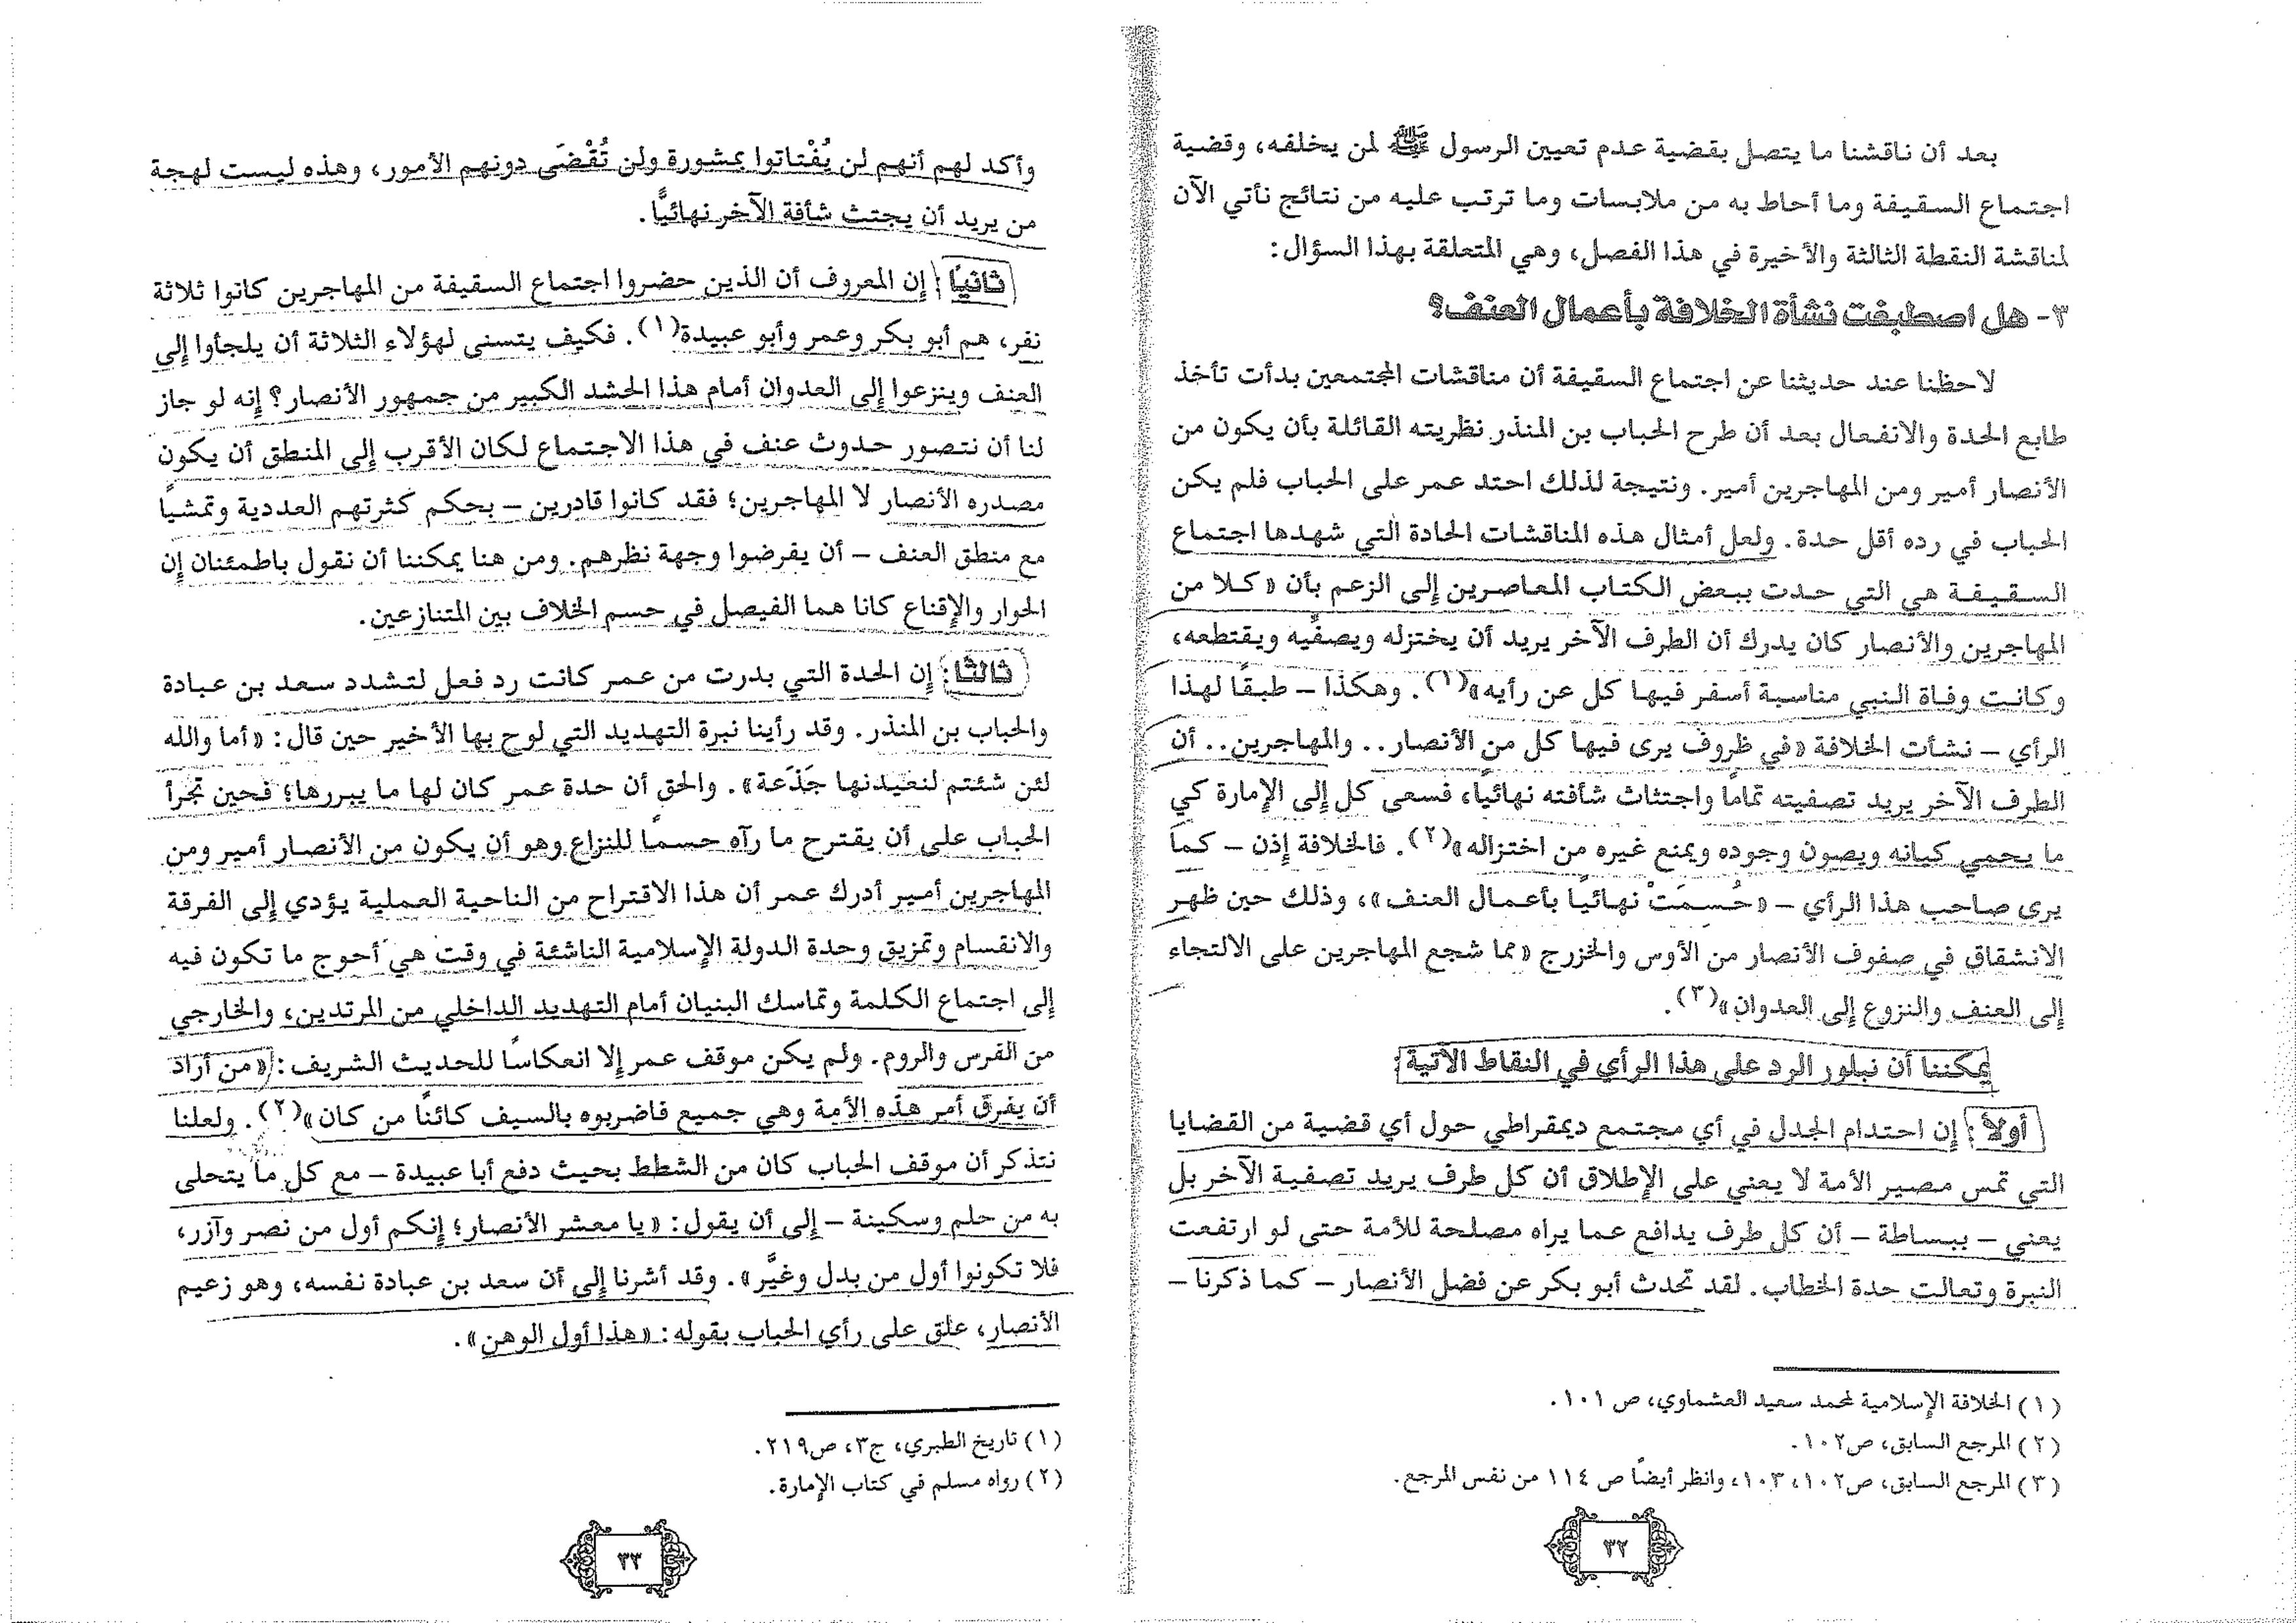 بعد أن ناقشنا ما يتصل بقضية عدم تعيين الرسول ﷺ لمن يخلفه، وقضية
اجتماع السقيفة وما أحاط به من ملابسات وما ترتب عليه من نتائج نأتي الآن
لمناقشة النقطة الثالثة والأخيرة في هذا الفصل، وهي المتعلقة بهذا السؤال:
٣- هل اصطبغت نشأة الخلافة بأعمال العنف؟
لاحظنا عند حديثنا عن اجتماع السقيفة أن مناقشات المجتمعين بدأت تأخذ
طابع الحدة والانفعال بعد أن طرح الحباب بن المنذر نظريته القائلة بأن يكون من
الأنصار أمير ومن المهاجرين أمير. ونتيجة لذلك احتد عمر على الحباب فلم يكن
الحباب في رده أقل حدة. ولعل أمثال هذه المناقشات الحادة التي شهدها اجتماع
السقيفة هي التي حدت ببعض الكتاب المعاصرين إلى الزعم بأن «كلا من
المهاجرين والأنصار كان يدرك أن الطرف الآخر يريد أن يختزله ويصفّيه ويقتطعه،
وكانت وفاة النبي مناسبة أسفر فيها كل عن رأيه»(١). وهكذا – طبقًا لهذا
الرأي – نشأت الخلافة «في ظروف يرى فيها كل من الأنصار.. والمهاجرين.. أن
الطرف الآخر يريد تصفيته تماماً واجتثاث شأفته نهائياً، فسعى كل إلى الإمارة كي
ما يحمي كيانه ويصون وجوده ويمنع غيره من اختزاله»(٢). فالخلافة إذن – كما
يرى صاحب هذا الرأي – «حُسِمَتْ نهائيًا بأعمال العنف»، وذلك حين ظهر
الانشقاق في صفوف الأنصار من الأوس والخزرج «مما شجع المهاجرين على الالتجاء
إلى العنف والنزوع إلى العدوان»(٣).
يمكننا أن نبلور الرد على هذا الرأي في النقاط الآتية:
أولاً: إن احتدام الجدل في أي مجتمع ديمقراطي حول أي قضية من القضايا
التي تمس مصير الأمة لا يعني على الإطلاق أن كل طرف يريد تصفية الآخر بل
يعني – ببساطة – أن كل طرف يدافع عما يراه مصلحة للأمة حتى لو ارتفعت
النبرة وتعالت حدة الخطاب. لقد تحدث أبو بكر عن فضل الأنصار – كما ذكرنا –
(١) الخلافة الإسلامية لمحمد سعيد العشماوي، ص ١٠١.
(٢) المرجع السابق، ص١٠٢.
(٣) المرجع السابق، ص١٠٢، ١٠٣، وانظر أيضًا ص ١١٤ من نفس المرجع.
٣٢
وأكد لهم أنهم لن يُفْتاتوا بمشورة ولن تُقْضَى دونهم الأمور، وهذه ليست لهجة
من يريد أن يجتث شأفة الآخر نهائيًّا.
ثانيًا: إن المعروف أن الذين حضروا اجتماع السقيفة من المهاجرين كانوا ثلاثة
نفر، هم أبو بكر وعمر وأبو عبيدة(١). فكيف يتسنى لهؤلاء الثلاثة أن يلجأوا إلى
العنف وينزعوا إلى العدوان أمام هذا الحشد الكبير من جمهور الأنصار؟ إنه لو جاز
لنا أن نتصور حدوث عنف في هذا الاجتماع لكان الأقرب إلى المنطق أن يكون
مصدره الأنصار لا المهاجرين؛ فقد كانوا قادرين – بحكم كثرتهم العددية وتمشيًا
مع منطق العنف – أن يفرضوا وجهة نظرهم. ومن هنا يمكننا أن نقول باطمئنان إن
الحوار والإقناع كانا هما الفيصل في حسم الخلاف بين المتنازعين.
ثالثًا: إن الحدة التي بدرت من عمر كانت رد فعل لتشدد سعد بن عبادة
والحباب بن المنذر. وقد رأينا نبرة التهديد التي لوح بها الأخير حين قال: «أما والله
لئن شئتم لنعيدنها جَذَعة». والحق أن حدة عمر كان لها ما يبررها؛ فحين تجرأ
الحباب على أن يقترح ما رآه حسمًا للنزاع وهو أن يكون من الأنصار أمير ومن
المهاجرين أمير أدرك عمر أن هذا الاقتراح من الناحية العملية يؤدي إلى الفرقة
والانقسام وتمزيق وحدة الدولة الإسلامية الناشئة في وقت هي أحوج ما تكون فيه
إلى اجتماع الكلمة وتماسك البنيان أمام التهديد الداخلي من المرتدين، والخارجي
من الفرس والروم. ولم يكن موقف عمر إلا انعكاسًا للحديث الشريف: «من أراد
أن يفرق أمر هذه الأمة وهي جميع فاضربوه بالسيف كائنًا من كان»(٢). ولعلنا
نتذكر أن موقف الحباب كان من الشطط بحيث دفع أبا عبيدة – مع كل ما يتحلى
به من حلم وسكينة – إلى أن يقول: «يا معشر الأنصار؛ إنكم أول من نصر وآزر،
فلا تكونوا أول من بدل وغيَّر». وقد أشرنا إلى أن سعد بن عبادة نفسه، وهو زعيم
الأنصار، علق على رأي الحباب بقوله: «هذا أول الوهن».
(١) تاريخ الطبري، ج٣، ص٢١٩.
(٢) رواه مسلم في كتاب الإمارة.
٣٣